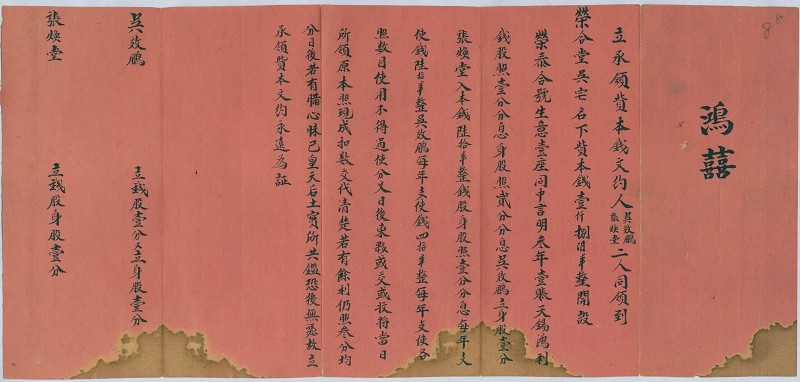 鴻禧
立承領貲本錢文約人吳效鵬張煥堂二人同領到
榮合堂吳宅名下貲本錢壹仟捌伯串整開設
榮泰合號生意壹座同中言明叁年壹賬天錫鴻利
錢股照壹分分息身股照貳分分息吳效鵬立身股壹分
張煥堂入本錢陸拾串整錢股身股照壹分分息每年支
使錢陸拾串整吳效鵬每年支使錢四拾串整每年支使各
照數目使用不得過使分文日後東夥或交或收將當日
所領原本照現成扣數交代清楚若有餘利仍照叁分均
分日後若有瞞心昧己皇天后土實所共鑑恐後無憑故立
承領貲本文約永遠為証
吳效鵬 立錢股壹分又立身股壹分
張煥堂 立錢股身股壹分